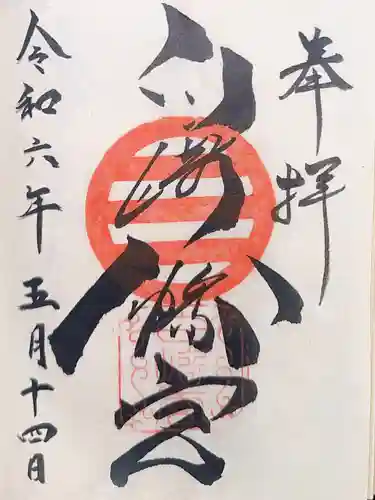 奉拝
八幡宮
令和六年五月十四日